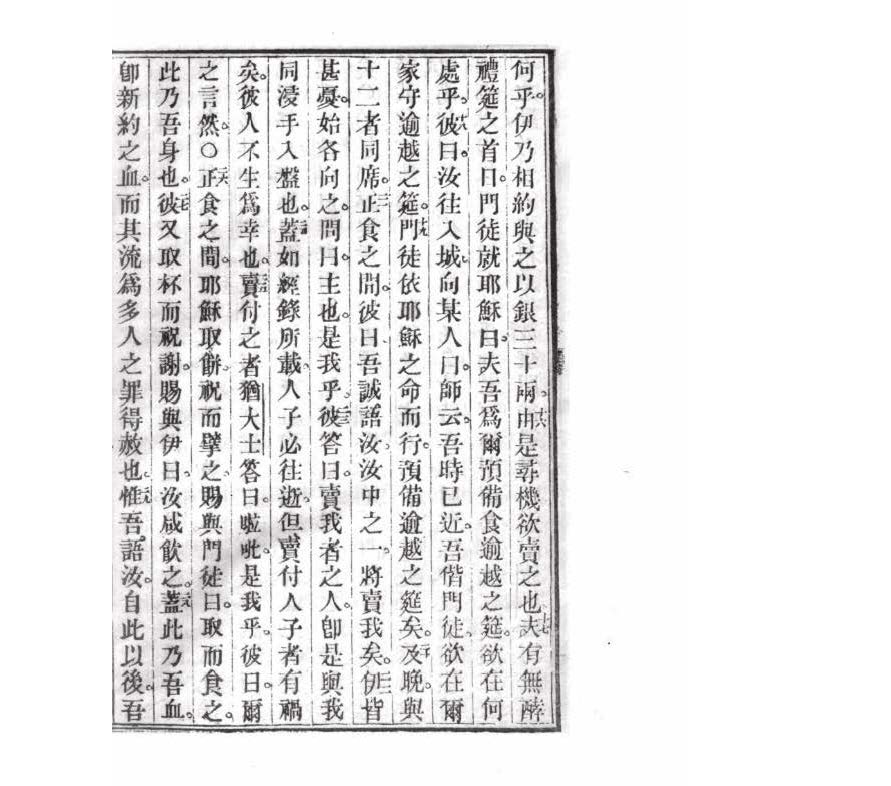 何乎。伊乃相約與之以銀三十兩。十六由是尋機欲賣之也。十七夫有無酵
禮筵之首日門徒就耶穌曰。夫吾爲爾預備食逾越之筵。欲在何
處乎。十八彼曰。汝往入城。向某人曰。師云。吾時已近。吾偕門徒。欲在爾
家守逾越之筵。十九門徒依耶穌之命而行。預備逾越之筵矣。二十及晚。與
十二者同席。二一正食之間。彼曰。吾誠語汝。汝中之一。將賣我矣。二二伊皆
甚憂。始各向之。問曰。主也。是我乎。二三彼答曰。賣我者之人。卽是與我
同浸手入盤也。二四蓋如經錄所載。人子必往逝。但賣付人子者有禍
矣。彼人不生爲幸也。二五賣付之者猶大士答曰。啦吡。是我乎。彼曰。爾
之言然。○二六正食之間。耶穌取餅。祝而擘之。賜與門徒曰。取而食之。
此乃吾身也。二七彼又取杯而祝謝。賜與伊曰。汝咸飲之。二八蓋此乃吾血。
卽新約之血。而其流爲多人之罪得赦也。二九惟吾語汝。自此以後。吾